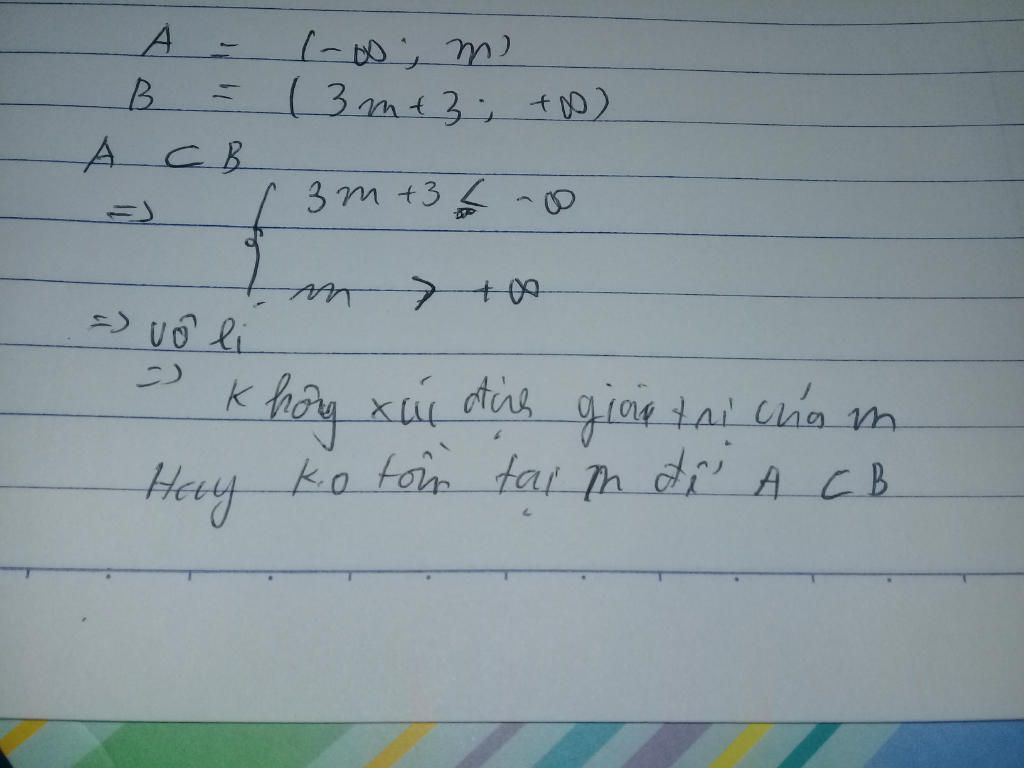 A = (-∞; m)
B = (3m+3; +∞)
A ⊂ B
=> { 3m+3 ≤ -∞
m > +∞
=> vô lí
=> Không xác định giá trị của m
Hay k.o tồn tại m để A ⊂ B